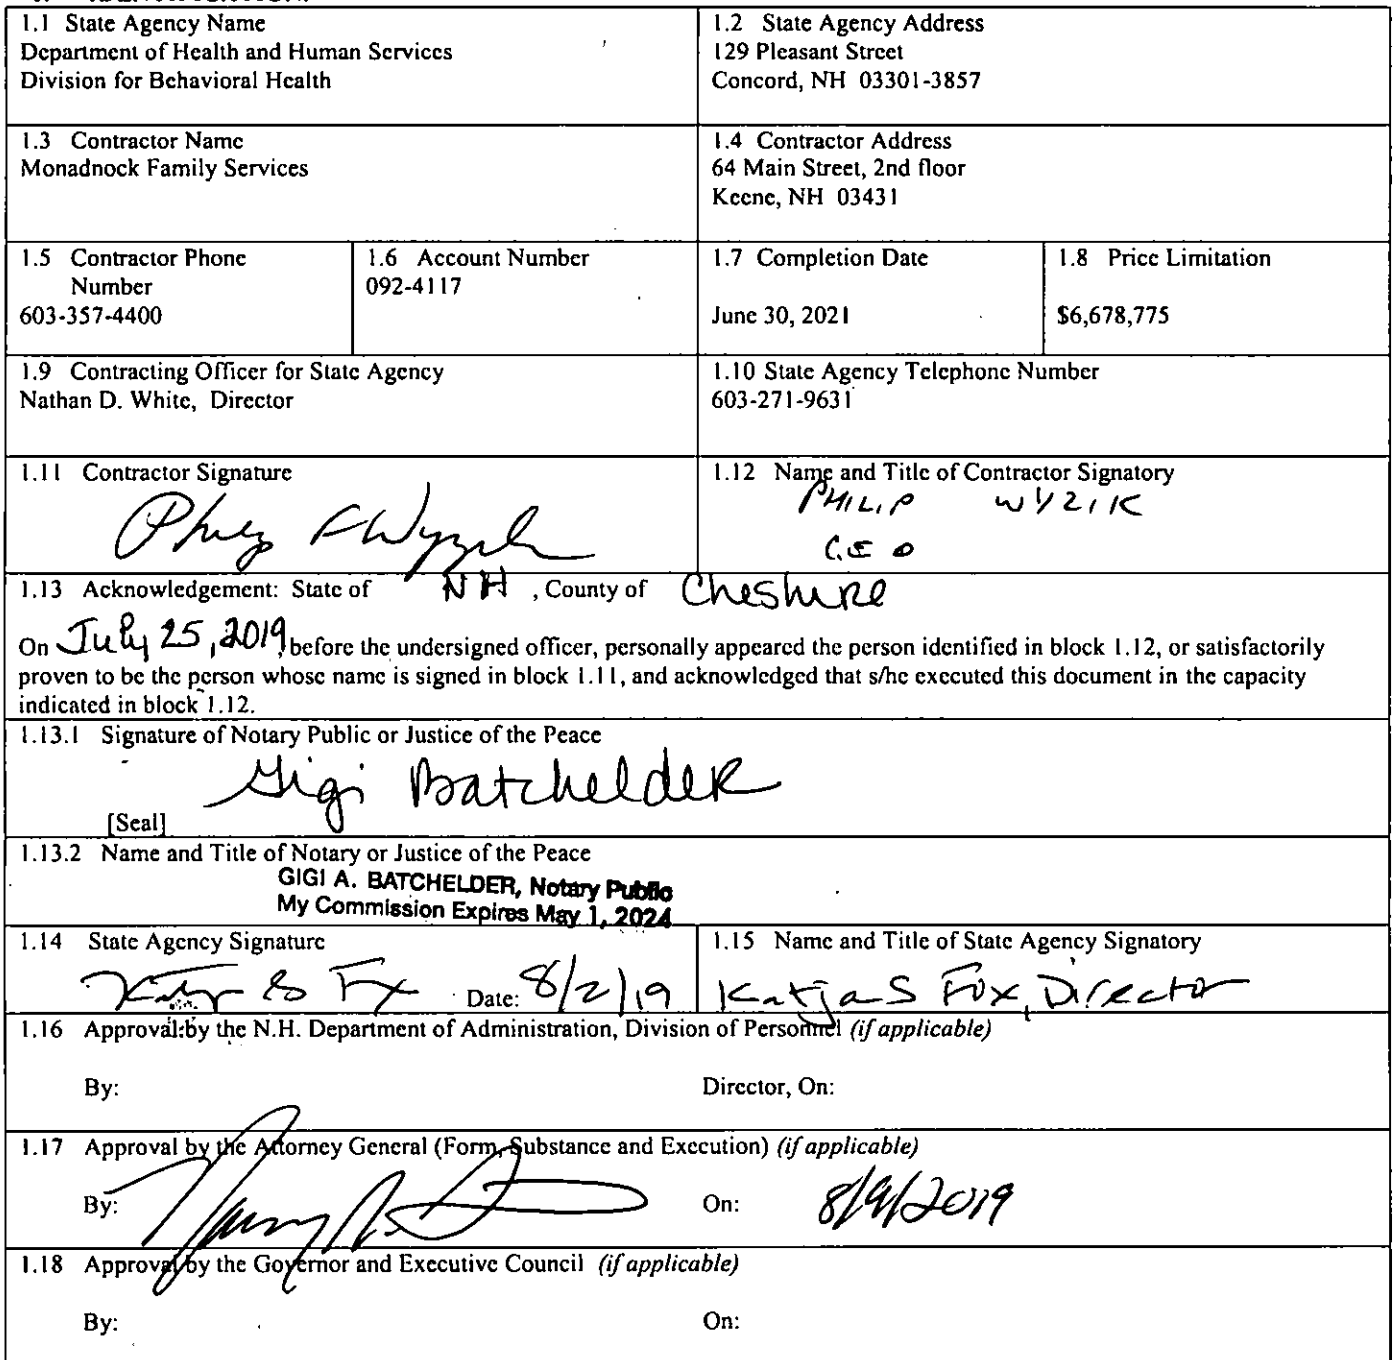 1.1 State Agency Name
Department of Health and Human Services
Division for Behavioral Health
1.2 State Agency Address
129 Pleasant Street
Concord, NH 03301-3857
1.3 Contractor Name
Monadnock Family Services
1.4 Contractor Address
64 Main Street, 2nd floor
Keene, NH 03431
1.5 Contractor Phone
Number
603-357-4400
1.6 Account Number
092-4117
1.7 Completion Date
June 30, 2021
1.8 Price Limitation
$6,678,775
1.9 Contracting Officer for State Agency
Nathan D. White, Director
1.10 State Agency Telephone Number
603-271-9631
1.11 Contractor Signature
1.12 Name and Title of Contractor Signatory
PHILIP WYZIK
CEO
1.13 Acknowledgement: State of NH, County of Cheshire
On July 25, 2019, before the undersigned officer, personally appeared the person identified in block 1.12, or satisfactorily
proven to be the person whose name is signed in block 1.11, and acknowledged that s/he executed this document in the capacity
indicated in block 1.12.
1.13.1 Signature of Notary Public or Justice of the Peace
Gigi Batchelder
[Seal]
1.13.2 Name and Title of Notary or Justice of the Peace
GIGI A. BATCHELDER, Notary Public
My Commission Expires May 1, 2024
1.14 State Agency Signature
Date: 8/2/19
1.15 Name and Title of State Agency Signatory
Katja S Fox, Director
1.16 Approval by the N.H. Department of Administration, Division of Personnel (if applicable)
By: Director, On:
1.17 Approval by the Attorney General (Form, Substance and Execution) (if applicable)
By: On: 8/9/2019
1.18 Approval by the Governor and Executive Council (if applicable)
By: On: